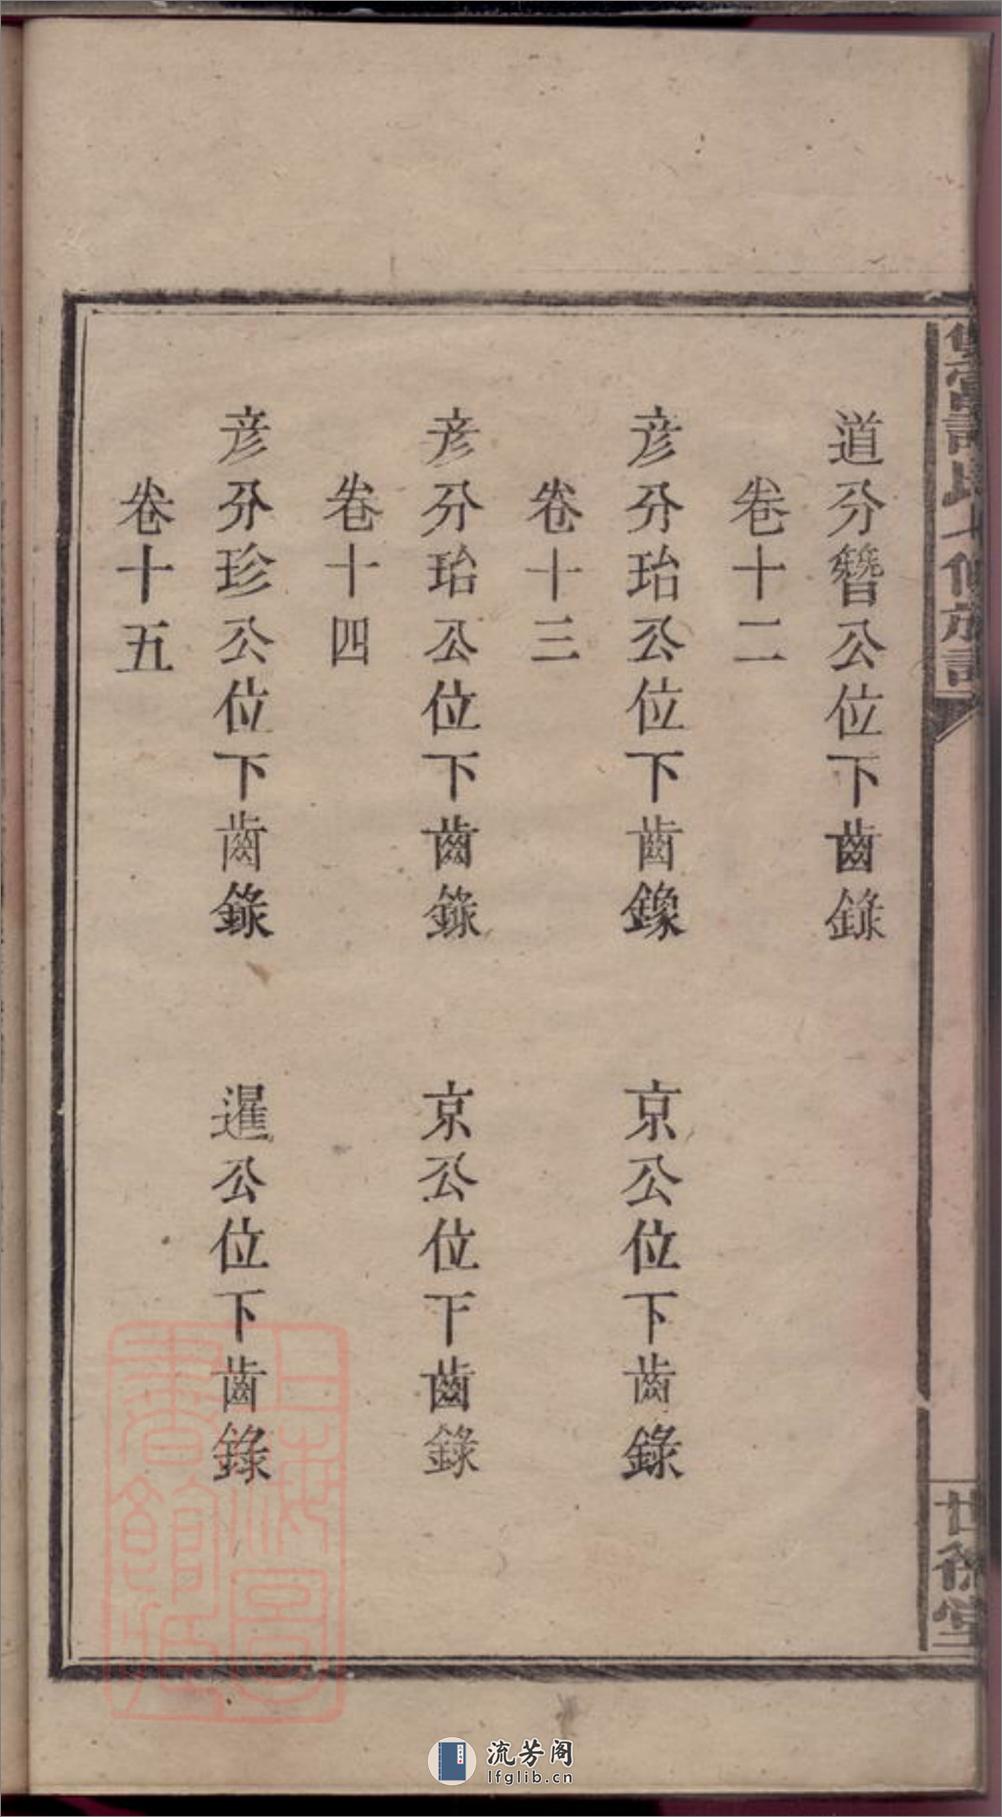 道分簪公位下齒錄
卷十二
彦分珆公位下齒錄 京公位下齒錄
卷十三
彦分珆公位下齒錄 京公位下齒錄
卷十四
彦分珍公位下齒錄 暹公位下齒錄
卷十五
上海圖書館藏
流芳阁
lfglib.cn